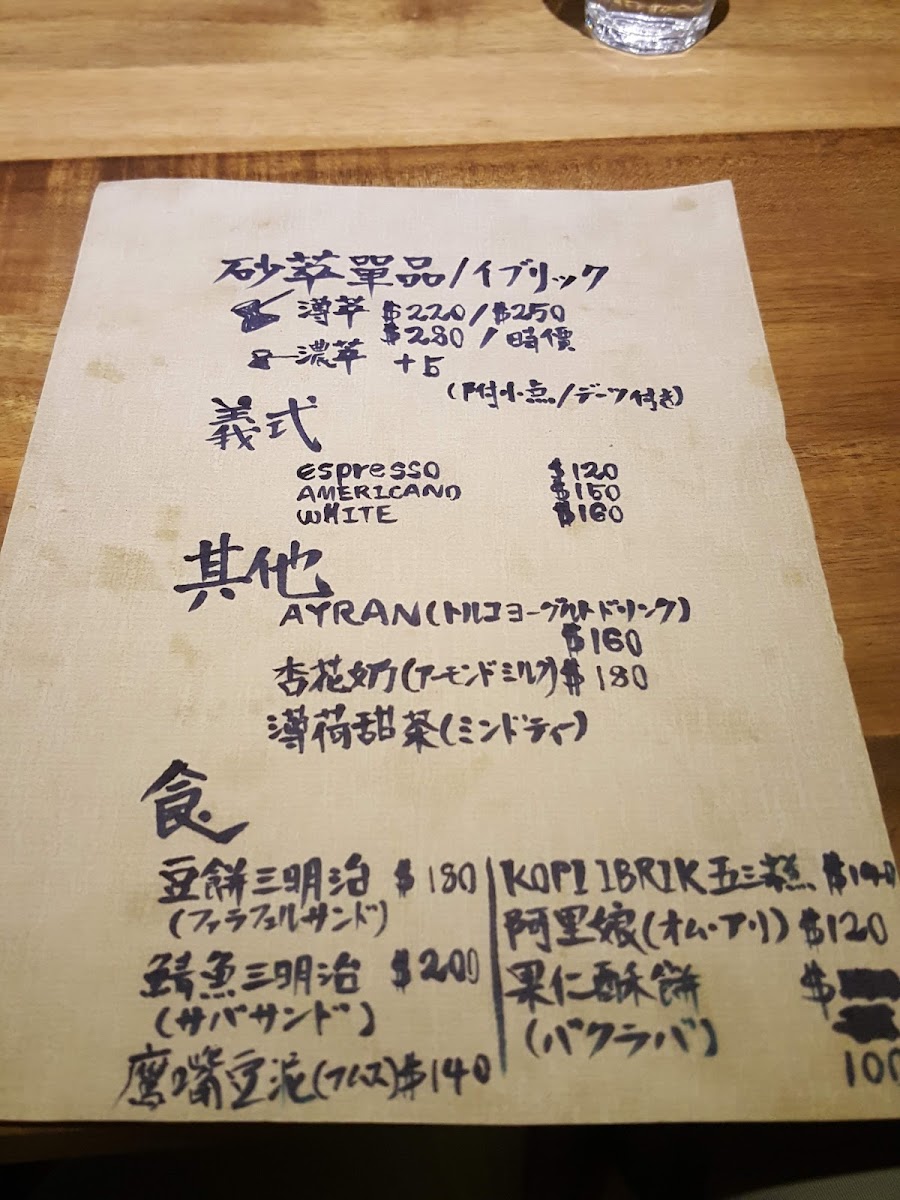 砂萃單品/イブリック
薄萃 $220/$250
$280/時價
濃萃 +5
(附小点/デーツ付き)
義式
espresso $120
AMERICANO $150
WHITE $160
其他
AYRAN(トルコヨーグルトドリンク)
$160
杏花奶(アーモンドミルク)$180
薄荷甜茶(ミンドティー)
食
豆餅三明治 $180
(ファラフェルサンド)
鯖魚三明治 $200
(サバサンド)
鷹嘴豆泥(フムス)$140
KOPI IBRIK 五三糕 $140
阿里嬤(オム・アリ)$120
果仁酥餅 $
(バクラバ)
100